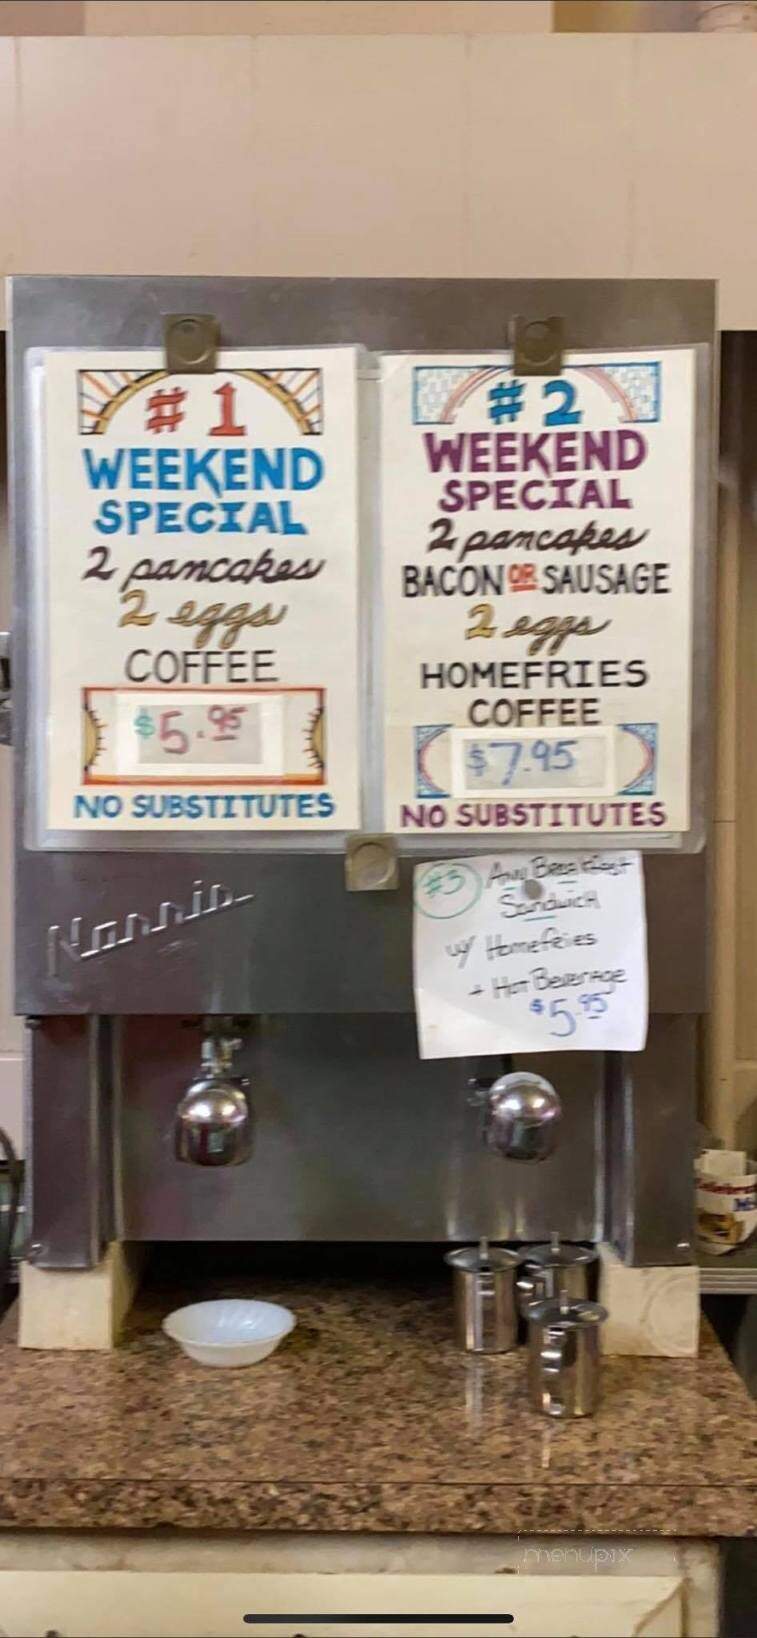 #1
WEEKEND
SPECIAL
2 pancakes
2 eggs
COFFEE
$5.95
NO SUBSTITUTES
#2
WEEKEND
SPECIAL
2 pancakes
BACON OR SAUSAGE
2 eggs
HOMEFRIES
COFFEE
$7.95
NO SUBSTITUTES
#3 Any Breakfast
Sandwich
w/ Homefries
+ Hot Beverage
$5.95
Norris
menupix